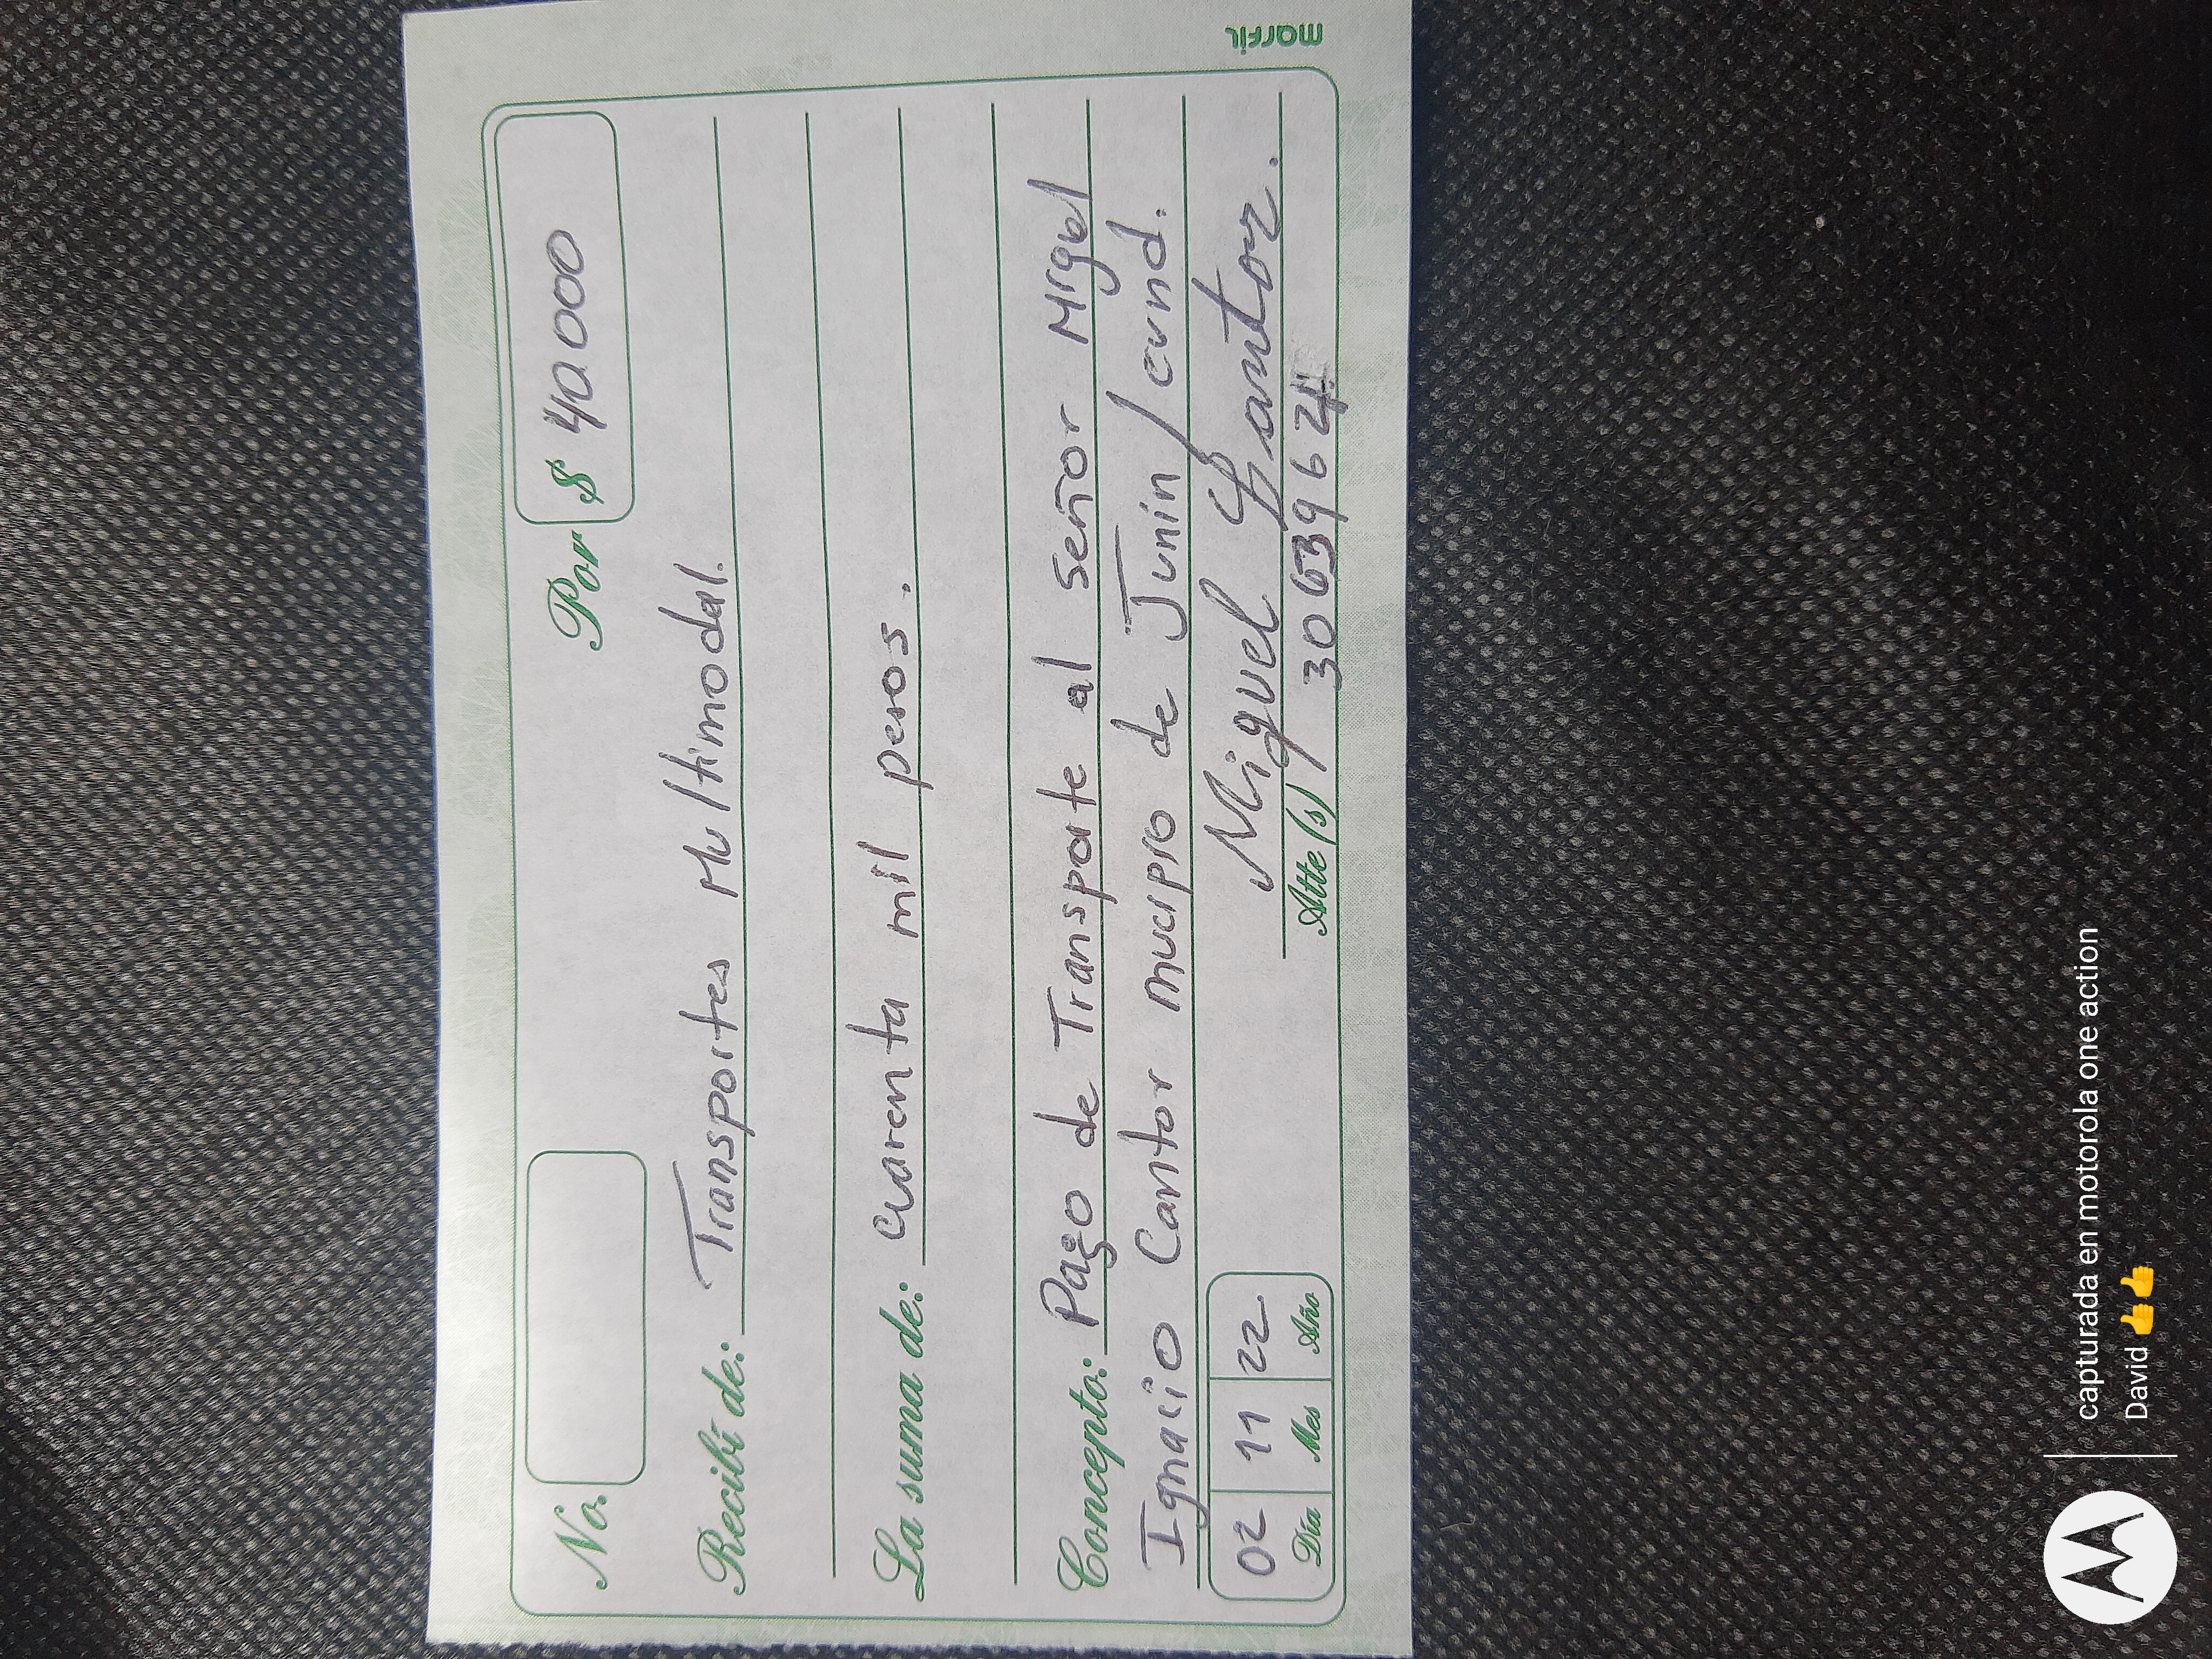 No.
Por $ 40.000
Recibí de: Transportes Multimodal.
La suma de: Cuarenta mil pesos.
Concepto: Pago de Transporte al señor Migel
Ignacio Cantor mucipio de Junin / cund.
Miguel Cantor.
02 11 22
Día Mes Año
Atte (s)
marfil
capturada en motorola one action
David 👍👍